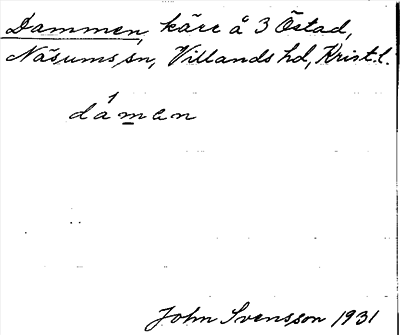 Dammen, kärr å 3 Östad,
Näsums sn, Villands hd, Krist. l.
1
dámen
John Svensson 1931